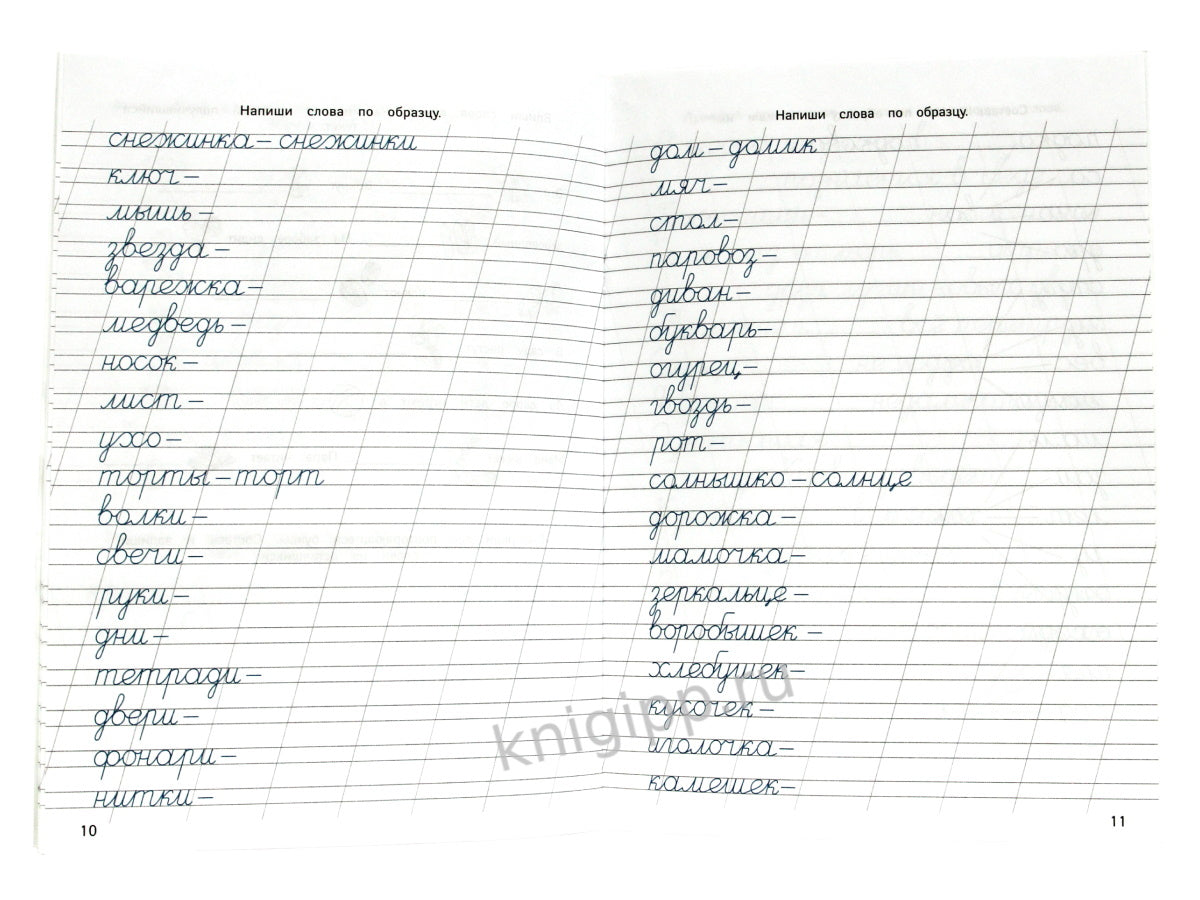 Напиши слова по образцу.
снежинка – снежинки
ключ –
мышь –
звезда –
варежка –
медведь –
носок –
лист –
ухо –
торты – торт
волки –
свечи –
руки –
дни –
тетради –
двери –
фонари –
нитки –
10
Напиши слова по образцу.
дом – домик
мяч –
стол –
паровоз –
диван –
букварь –
огурец –
гвоздь –
рот –
солнышко – солнце
дорожка –
мамочка –
зеркальце –
воробышек –
хлебушек –
кусочек –
иголочка –
камешек –
11
knigipp.ru